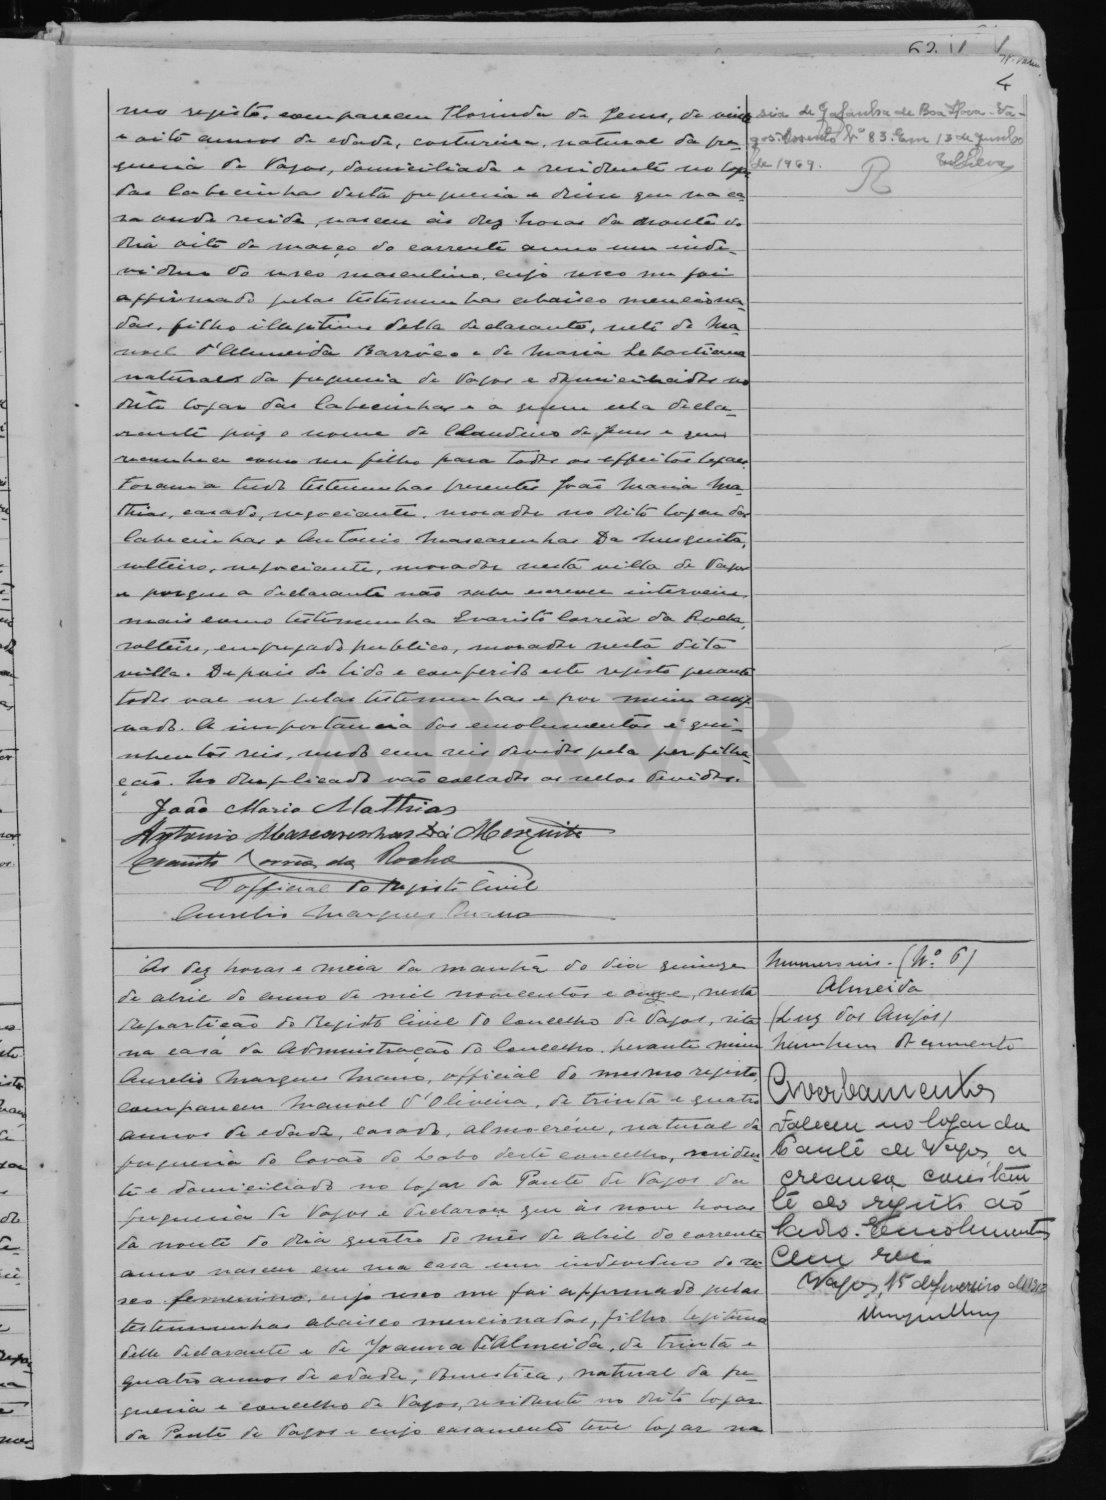 4
mo registo, compareceu Florinda de Jesus, de vinte
e oito annos de edade, costureira, natural da fre-
guesia de Vagos, domiciliada e residente no logar
das Cabecinhas desta freguesia e disse que na ca-
sa onde reside, nasceu ás dez horas da noute do
dia oito de março do corrente anno um indi-
viduo do sexo masculino, cujo sexo me foi
affirmado pelas testemunhas abaixo menciona-
das, filho illegitimo della declarante, neto de Ma-
noel d'Almeida Barrôco e de Maria Sebastiana
naturaes da freguesia de Vagos e domiciliados no
dito logar das Cabecinhas e a quem esta decla-
rante poz o nome de Claudino de Jesus e quem
reconhece como seu filho para todos os effeitos legaes.
Foram a tudo testemunhas presentes João Maria Ma-
thias, casado, negociante, morador no dito logar das
Cabecinhas e Antonio Mascarenhas Da Mesquita,
solteiro, negociante, morador nesta villa de Vagos
e porque a declarante não sabe escrever interveiu
mais como testemunha Evaristo Corrêa da Rocha,
solteiro, empregado publico, morador nesta dita
villa. Depois de lido e conferido este registo perante
todos vae ser pelas testemunhas e por mim assig-
nado. A importancia dos emolumentos é qui-
nhentos reis, sendo cem reis devidos pela perfilha-
ção. No duplicado vão collados os sellos devidos.
João Maria Mathias
Antonio Mascarenhas Da Mesquita
Evaristo Corrêa da Rocha
O official do Registo Civil
Aurelio Marques Mano
sia de Gafanha da Boa Hora - Va-
gos. Assento Nº 83. Em 13 de Junho
de 1969.
R
ESilva
As dez horas e meia da manhã do dia quinze
de abril do anno de mil novecentos e onze, nesta
Repartição do Registo Civil do Concelho de Vagos, sita
na casa da Administração do Concelho, perante mim
Aurelio Marques Mano, official do mesmo registo,
compareceu Manoel d'Oliveira, de trinta e quatro
annos de edade, casado, almocreve, natural da
freguesia do Covão do Lobo deste concelho, residen-
te e domiciliado no logar da Ponte de Vagos da
freguesia de Vagos e declarou que ás nove horas
da noute do dia quatro do mês de abril do corrente
anno nasceu em sua casa um individuo do se-
xo femenino, cujo sexo me foi affirmado pelas
testemunhas abaixo mencionadas, filho legitimo
delle declarante e de Joanna d'Almeida, de trinta e
quatro annos de edade, domestica, natural da fre-
guesia e concelho de Vagos, residente no dito logar
da Ponte de Vagos e cujo casamento teve logar na
Numero seis - (Nº 6)
Almeida
(Luz dos Anjos)
Nenhum documento
Averbamentos
Faleceu no logar da
Ponte de Vagos a
creança constan
te do registo ao
lado. Emolumentos
Cem reis
Vagos, 15 de fevereiro de 1912
AAVR